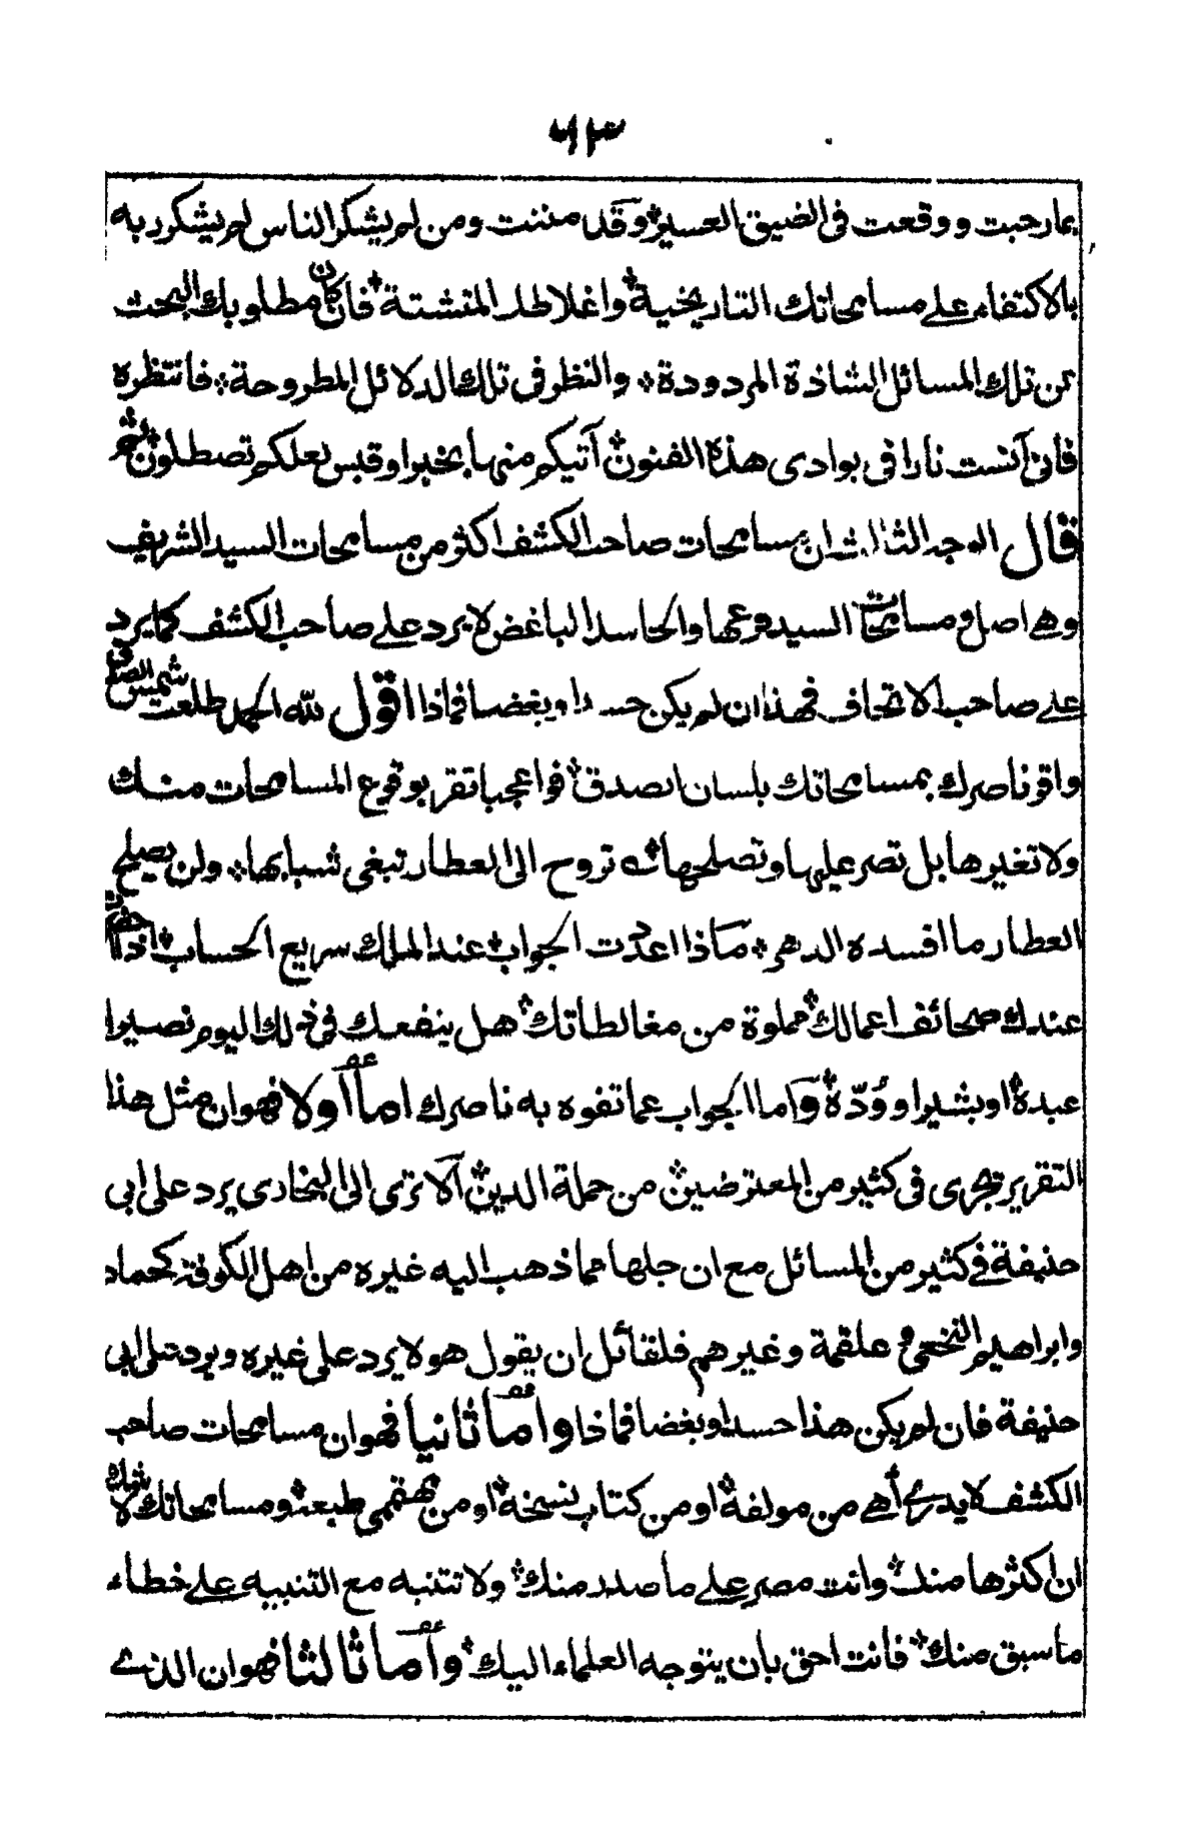 ٦١٣
بما رحبت ووقعت فى الضيق العسير وقد مننت ومن لم يشكر الناس لم يشكر ربه
بالاكتفاء على مسامحاتك التاريخية واغلاطك المتشتتة فان كان مطلوبك البحث
عن تلك المسائل الشاذة المردودة والنظر فى تلك الدلائل المطروحة فانتظره
فانى آنست نارا فى بوادى هذه الفنون آتيكم منها بخبر او قبس لعلكم تصطلون ثم
قال الوجه الثالث ان مسامحات صاحب الكشف اكثر من مسامحات السيد الشريف
وهى اصل ومسامحات السيد فرعها والحاسد الباغض لا يرد على صاحب الكشف كما يرد
على صاحب الاتحاف فهذا ان لم يكن حسدا وبغضا فماذا اقول لله الحمد طلعت شمس الصدق
واقر ناصرك بمسامحاتك بلسان الصدق فواعجبا تقر بوقوع المسامحات منك
ولا تغيرها بل تصر عليها وتصلحها تروح الى العطار تبغى شبابها ولن يصلح
العطار ما افسده الدهر ماذا اعددت الجواب عند الملك سريع الحساب اذا حضرت
عندك صحائف اعمالك مملوة من مغالطاتك هل ينفعك فى ذلك اليوم نصيرا
عبدة او بشيرا وودة واما الجواب عما تفوه به ناصرك اما اولا فهو ان مثل هذا
التقرير تجرى فى كثير من المعترضين من حملة الدين الا ترى الى البخارى يرد على ابى
حنيفة فى كثير من المسائل مع ان جلها مما ذهب اليه غيره من اهل الكوفة كحماد
وابراهيم النخعى وعلقمة وغيرهم فلقائل ان يقول هو لا يرد على غيره ويرد على ابى
حنيفة فان لم يكن هذا حسدا وبغضا فماذا واما ثانيا فهو ان مسامحات صاحب
الكشف لا يدرى أهى من مولفة او من كتاب نسخة او من مهتمى طبعة ومسامحاتك لا شك
ان اكثرها منك وانت مصر على ما صدر منك ولا تتنبه مع التنبيه على خطاء
ما سبق منك فانت احق بان يتوجه العلماء اليك واما ثالثا فهو ان الذى